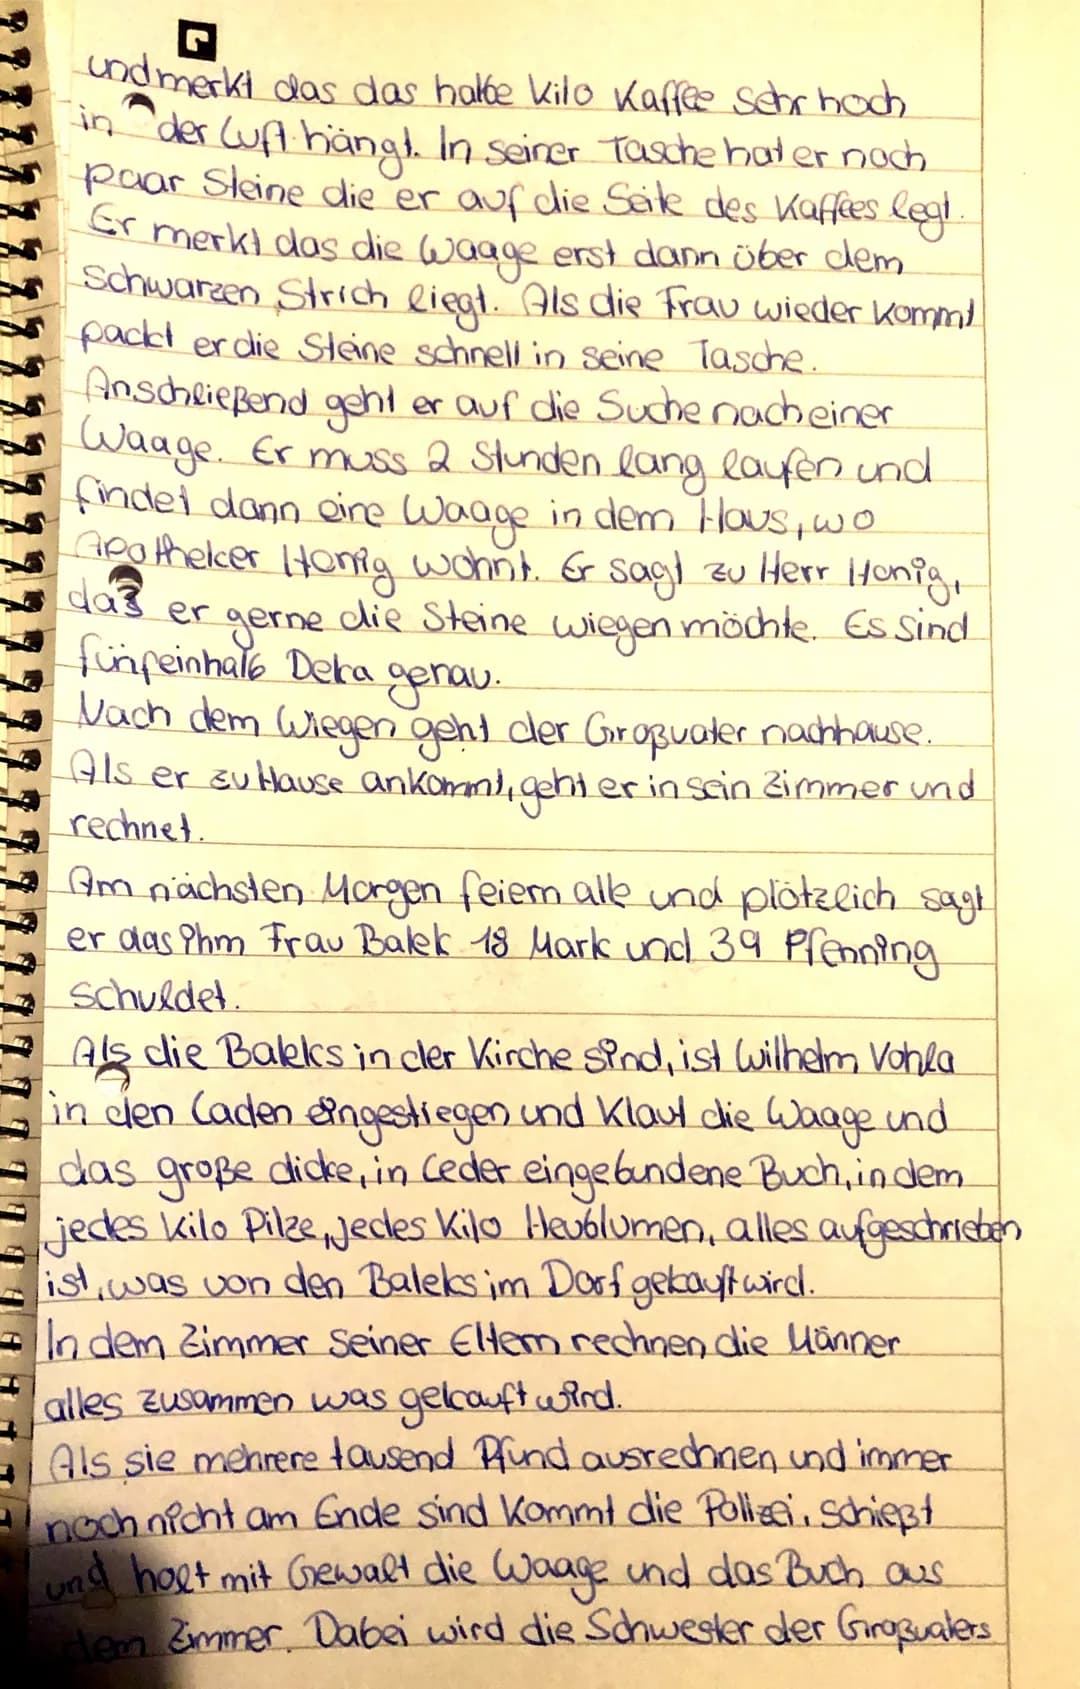 und merkt das das halbe Kilo Kaffee sehr hoch
in der Luft hängt. In seiner Tasche hat er noch
paar Steine die er auf die Seite des Kaffees legt.
Er merkt das die Waage erst dann über dem
schwarzen Strich liegt. Als die Frau wieder kommt
packt er die Steine schnell in seine Tasche.
Anschließend geht er auf die Suche nach einer
Waage. Er muss 2 Stunden lang laufen und
findet dann eine Waage in dem Haus, wo
Apotheker Honig wohnt. Er sagt zu Herr Honig,
daß er gerne die Steine wiegen möchte. Es sind
fünfeinhalb Deka genau.
Nach dem Wiegen geht der Großvater nachhause.
Als er zu Hause ankommt, geht er in sein Zimmer und
rechnet.
Am nächsten Morgen feiern alle und plötzlich sagt
er das ihm Frau Balek 18 Mark und 39 Pfenning
schuldet.
Als die Baleks in der Kirche sind, ist Wilhelm Vohla
in den Laden eingestiegen und klaut die Waage und
das große dicke, in Leder eingebundene Buch, in dem
jedes Kilo Pilze, jedes Kilo Heublumen, alles aufgeschrieben
ist, was von den Baleks im Dorf gekauft wird.
In dem Zimmer seiner Eltern rechnen die Männer
alles zusammen was gekauft wird.
Als sie mehrere tausend Pfund ausrechnen und immer
noch nicht am Ende sind kommt die Polizei, schießt
und holt mit Gewalt die Waage und das Buch aus
dem Zimmer. Dabei wird die Schwester der Großvaters